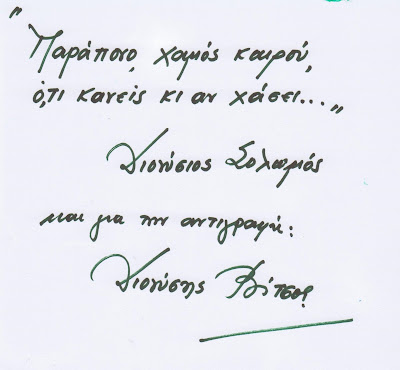 "Παράπονο, χαμός καιρού,
ό,τι κανείς κι αν χάσει..."
Διονύσιος Σολωμός
και για την αντιγραφή:
Διονύσης Βίτσος